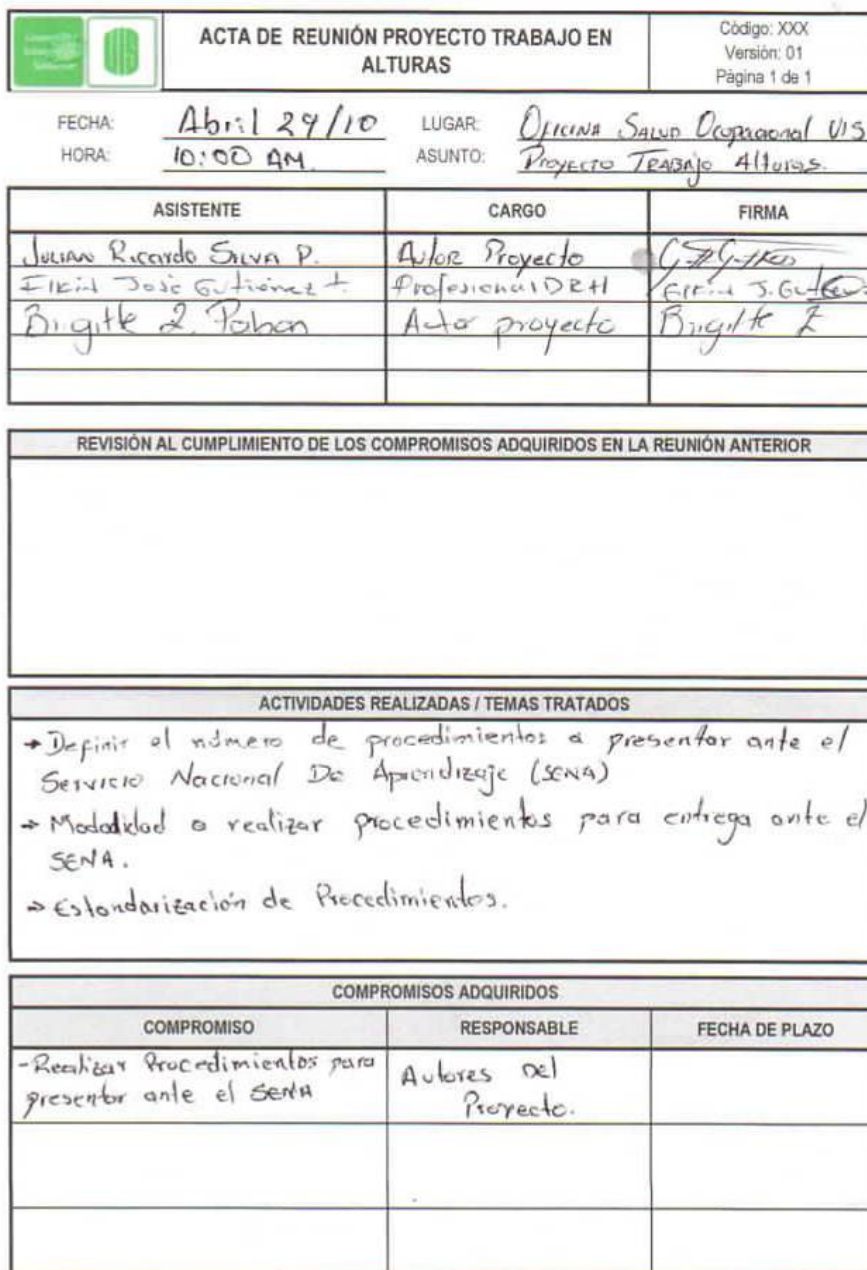 ACTA DE REUNIÓN PROYECTO TRABAJO EN
ALTURAS
Código: XXX
Versión: 01
Página 1 de 1
FECHA: Abril 29/10 LUGAR: Oficina Salud Ocupacional UIS
HORA: 10:00 AM. ASUNTO: Proyecto Trabajo Alturas.
ASISTENTE CARGO FIRMA
Julian Ricardo Silva P. Autor Proyecto
Elkin José Gutiérrez t. Profesional DRH Elkin J.
Brigitte Z. Pabon Autor proyecto Brigitte Z
REVISIÓN AL CUMPLIMIENTO DE LOS COMPROMISOS ADQUIRIDOS EN LA REUNIÓN ANTERIOR
ACTIVIDADES REALIZADAS / TEMAS TRATADOS
→ Definir el número de procedimientos a presentar ante el
Servicio Nacional De Aprendizaje (SENA)
→ Modalidad a realizar procedimientos para entrega ante el
SENA.
→ Estandarización de Procedimientos.
COMPROMISOS ADQUIRIDOS
COMPROMISO RESPONSABLE FECHA DE PLAZO
- Realizar Procedimientos para
presentar ante el SENA
Autores Del
Proyecto.